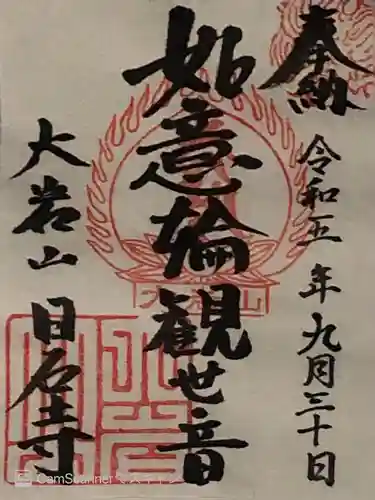 奉納
令和五年九月三十日
如意輪観世音
大岩山
日石寺
CamScanner